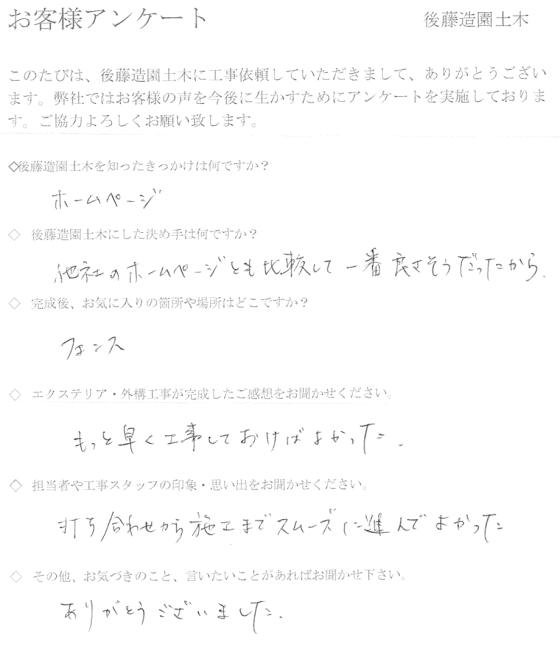 お客様アンケート
後藤造園土木
このたびは、後藤造園土木に工事依頼していただきまして、ありがとうござい
ます。弊社ではお客様の声を今後に生かすためにアンケートを実施しておりま
す。ご協力よろしくお願い致します。
◇後藤造園土木を知ったきっかけは何ですか？
ホームページ
◇ 後藤造園土木にした決め手は何ですか？
他社のホームページとも比較して一番良さそうだったから.
◇ 完成後、お気に入りの箇所や場所はどこですか？
フェンス
◇ エクステリア・外構工事が完成したご感想をお聞かせください。
もっと早く工事しておけばよかった.
◇ 担当者や工事スタッフの印象・思い出をお聞かせください。
打ち合わせから施工までスムーズに進んでよかった
◇ その他、お気づきのこと、言いたいことがあればお聞かせ下さい。
ありがとうございました.